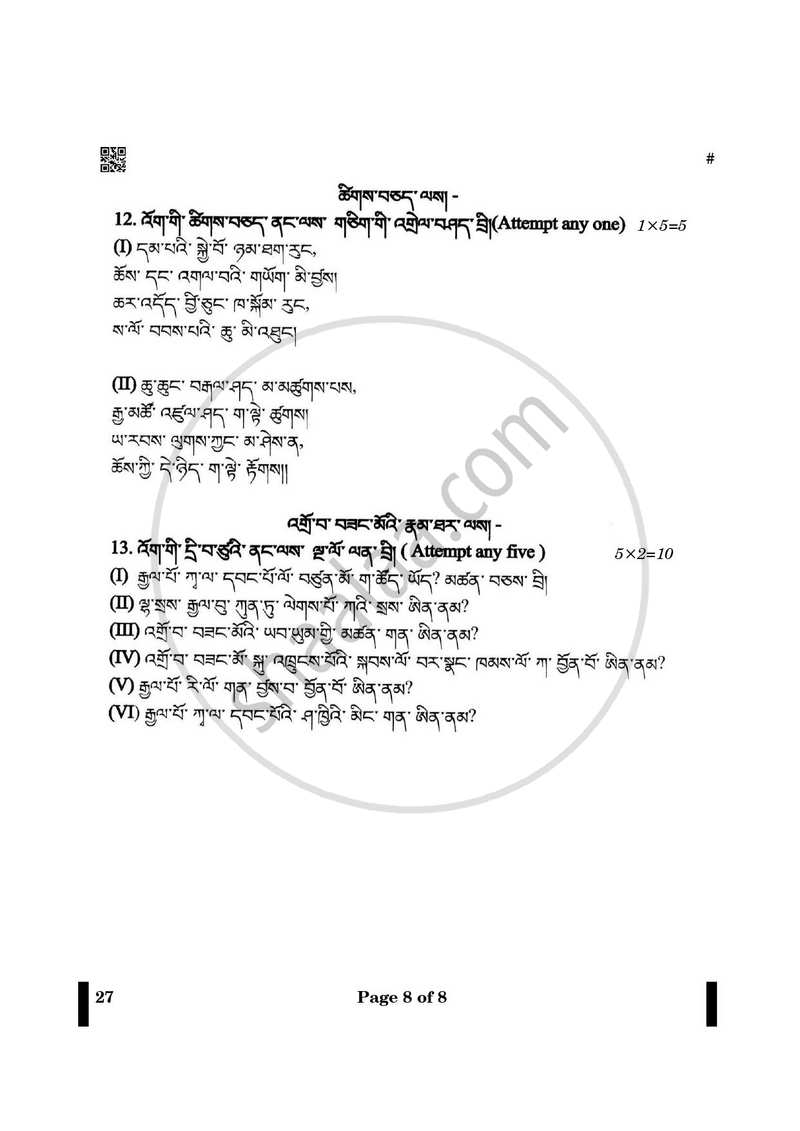 #
ཚིགས་བཅད་ལས། -
12. འོག་གི་ ཚིགས་བཅད་ ནང་ལས་ གཅིག་གི་ འགྲེལ་བཤད་ བྲི།(Attempt any one) 1×5=5
(I) དམ་པའི་ སྐྱེ་བོ་ ཉམ་ཐག་རུང,
ཆོས་ དང་ འགལ་བའི་ གཡོག་ མི་བྱས།
ཆར་འདོད་ བྱི་ཅུང་ ཁ་སྐོམ་ རུང,
ས་ལོ་ བབས་པའི་ ཆུ་ མི་འཐུང།
(II) ཆུ་ཆུང་ བརྒལ་ཤད་ མ་མཚུགས་པས,
རྒྱ་མཚོ་ འཛུལ་ཤད་ ག་ལྟེ་ ཚུགས།
ཡ་རབས་ ལུགས་ཀྱང་ མ་ཤེས་ན,
ཆོས་ཀྱི་ དེ་ཉིད་ ག་ལྟེ་ རྟོགས།།
འགྲོ་བ་ བཟང་མོའི་ རྣམ་ཐར་ ལས། -
13. འོག་གི་ དྲི་བ་ཙུའི་ ནང་ལས་ ལྔ་ལོ་ ལན་ བྲི། ( Attempt any five ) 5×2=10
(I) རྒྱལ་པོ་ ཀཱ་ལ་ དབང་པོ་ལོ་ བཙུན་མོ་ ག་ཚོད་ ཡོད? མཚན་ བཅས་ བྲི།
(II) ལྷ་སྲས་ རྒྱལ་བུ་ ཀུན་ཏུ་ ལེགས་པོ་ ཀའི་ སྲས་ ཨིན་ནམ?
(III) འགྲོ་བ་ བཟང་མོའི་ ཡབ་ཡུམ་གྱི་ མཚན་ གན་ ཨིན་ནམ?
(IV) འགྲོ་བ་ བཟང་མོ་ སྐུ་ འཁྲུངས་པོའི་ སྐབས་ལོ་ བར་སྣང་ ཁམས་ལོ་ ཀ་ བྱོན་བོ་ ཨིན་ནམ?
(V) རྒྱལ་པོ་ རི་ལོ་ གན་ བྱས་བ་ བྱོན་བོ་ ཨིན་ནམ?
(VI) རྒྱལ་པོ་ ཀཱ་ལ་ དབང་པོའི་ ཤ་ཁྱིའི་ མིང་ གན་ ཨིན་ནམ?
shaalaa.com
27 Page 8 of 8